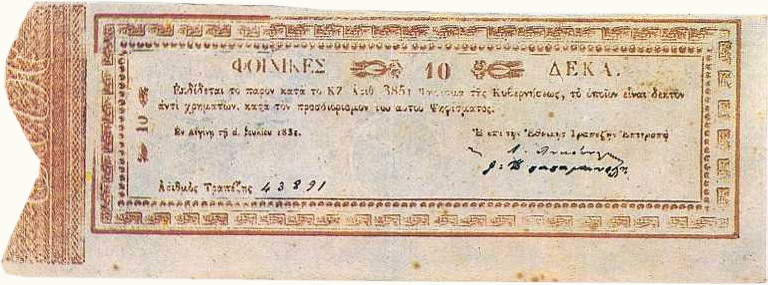 ΦΟΙΝΙΚΕΣ 10 ΔΕΚΑ.
Ἐκδίδεται τὸ παρὸν κατὰ τὸ ΚΖ Ἀριθ 3851 Ψήφισμα τῆς Κυβερνήσεως, τὸ ὁποῖον εἶναι δεκτὸν
ἀντὶ χρημάτων, κατὰ τὸν προσδιορισμὸν του αὐτοῦ Ψηφίσματος.
Ἐν Αἰγίνῃ τῇ Ἰουνίου 1831.
Ἡ ἐπὶ τῆς Ἐθνικῆς Τραπέζης Ἐπιτροπὴ
Ἀριθμὸς Τραπέζης 43891
10
10